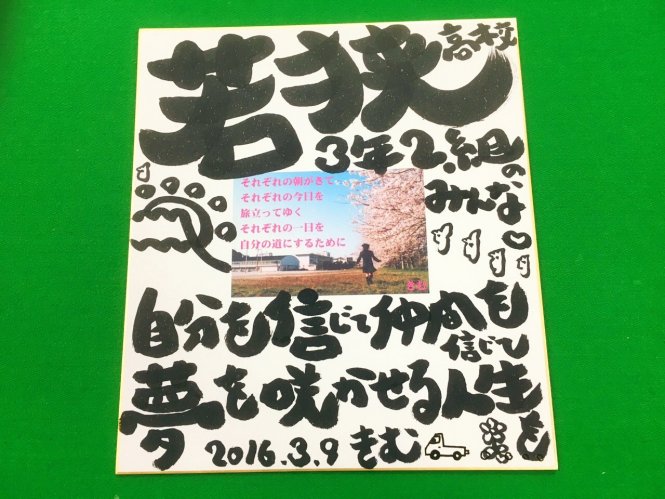 若狭高校
3年2組の
みんな
それぞれの朝がきて
それぞれの今日を
旅立ってゆく
それぞれの一日を
自分の道にするために
きむ
自分も信じて仲間も
信じて
夢を咲かせる人生を
2016.3.9 きむ